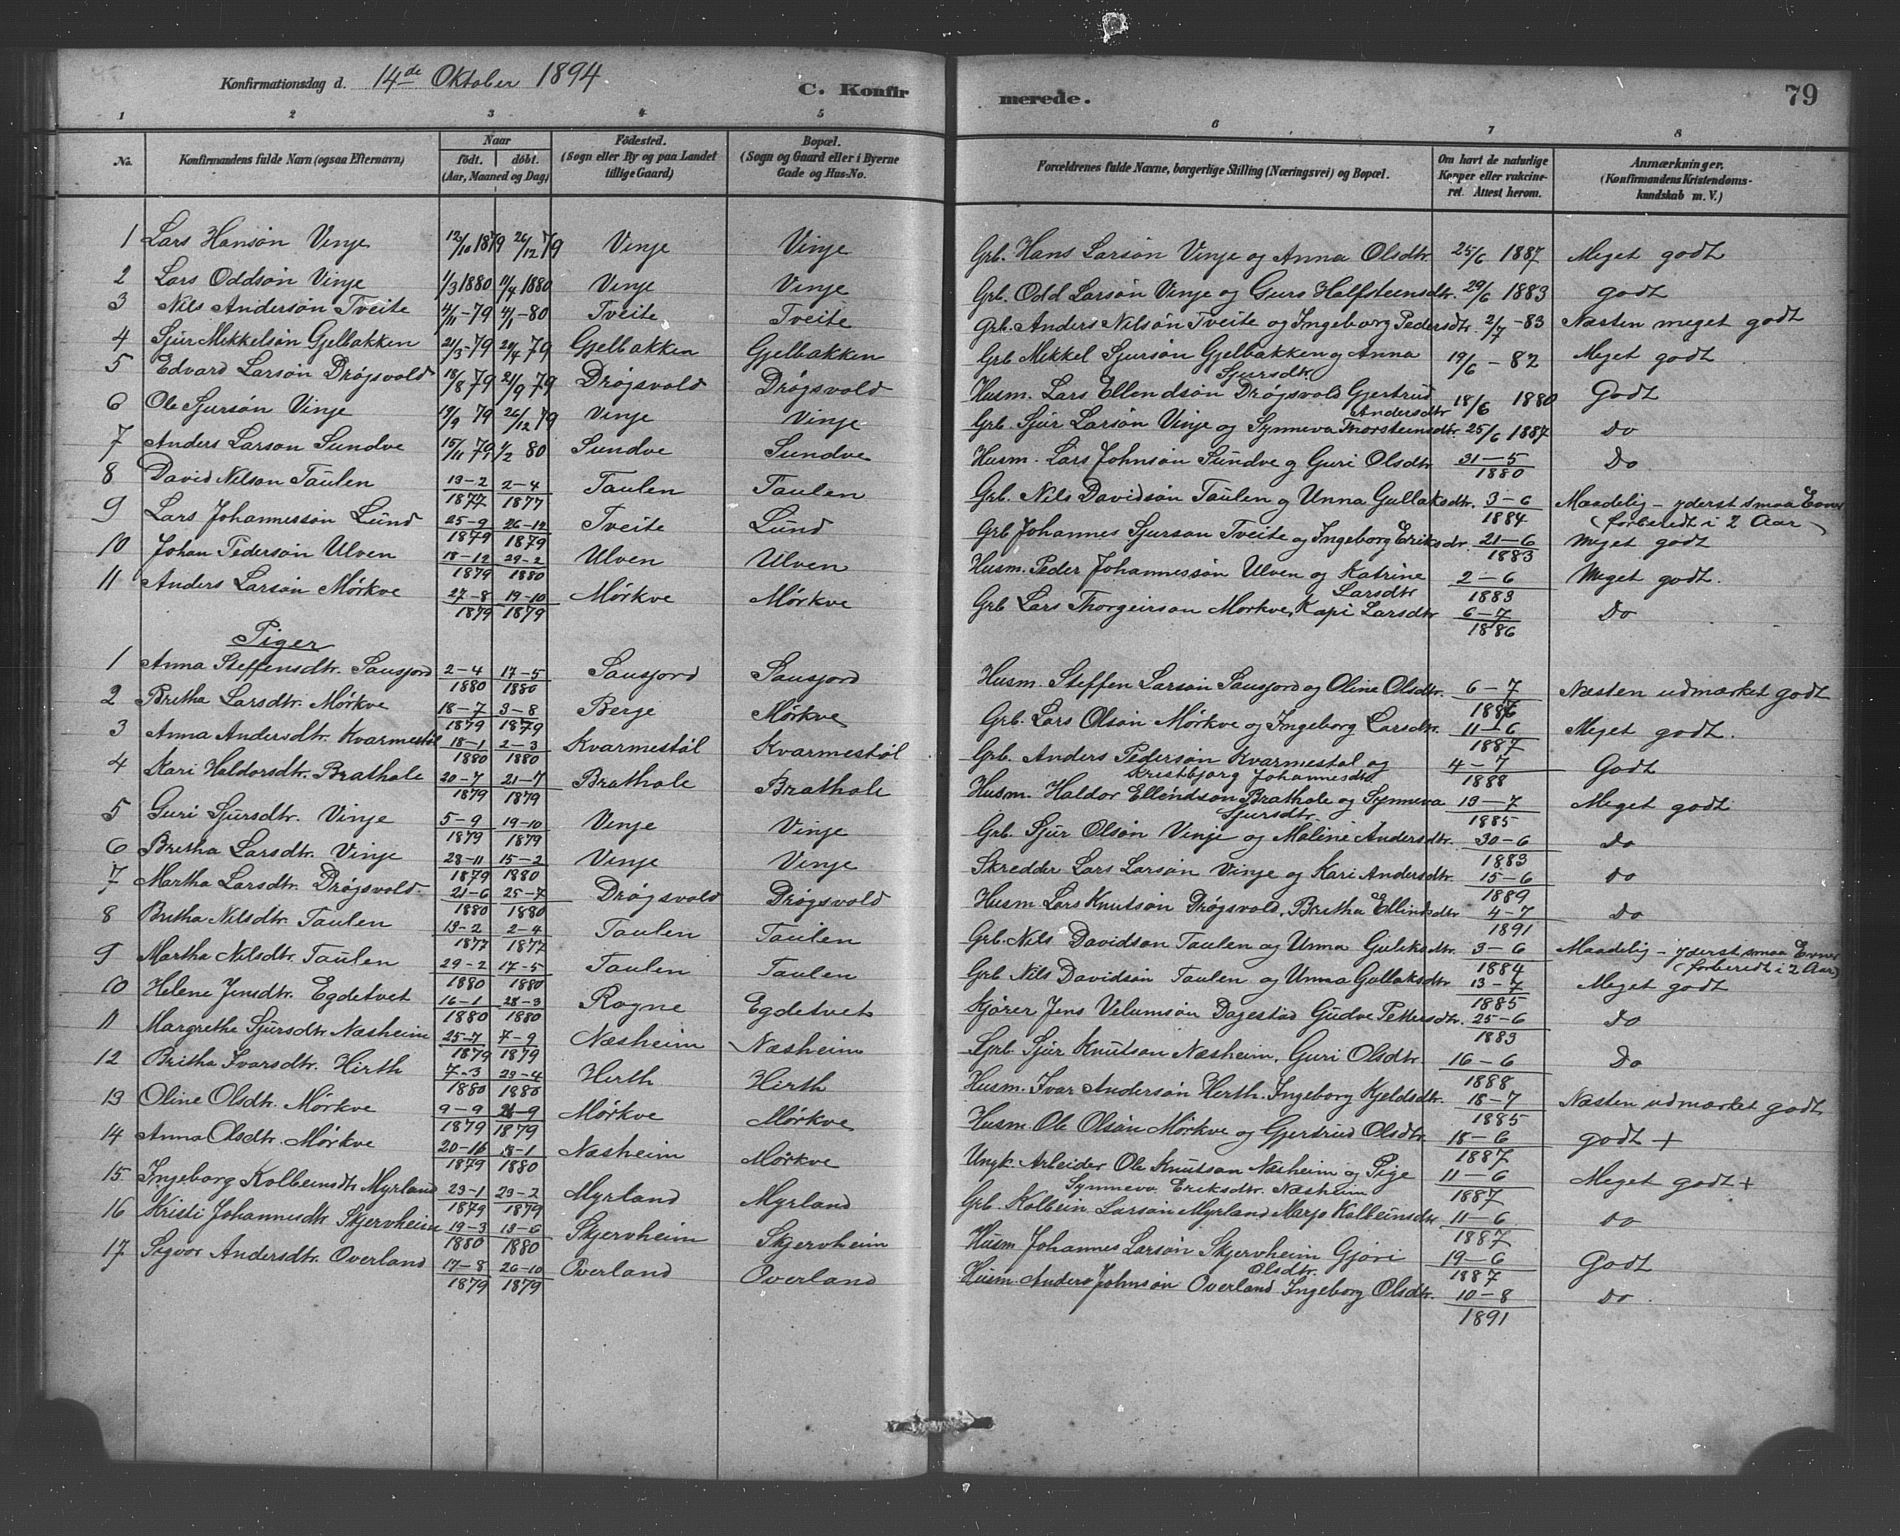 Konfirmationsdag d. 14de Oktober 1894 C. Konfirmerede. 79
1 2 3 4 5 6 7 8
No. Konfirmandens fulde Navn (ogsaa Efternavn) Naar födt. döbt. (Aar, Maaned og Dag) Födested. (Sogn eller By og paa Landet tillige Gaard) Bopæl. (Sogn og Gaard eller i Byerne Gade og Hus-No. Forældrenes fulde Navne, borgerlige Stilling (Næringsvei) og Bopæl. Om havt de naturlige Kopper eller vakcineret. Attest herom. Anmærkninger. (Konfirmandens Kristendomskundskab m. V.)
1 Lars Hanson Vinje 12/10 1879 26/12 79 Vinje Vinje Grb. Hans Larson Vinje og Anna Olsdtr 25/6 1887 Meget godt
2 Lars Oddson Vinje 1/3 1880 11/4 1880 Vinje Vinje Grb. Odd Larson Vinje og Guro Halfsteinsdtr. 29/6 1883 godt
3 Nils Anderson Tveite 4/11-79 4/1-80 Tveite Tveite Grb. Anders Nilson Tveite og Ingeborg Pedersdtr. 2/7-83 Næsten meget godt
4 Sjur Mikkelson Gjelbakken 21/3-79 20/4 79 Gjelbakken Gjelbakken Grb Mikkel Sjurson Gjelbakken og Anna Sjursdtr. 19/6-82 Meget godt
5 Edvard Larson Drøgsvold 18/8 79 21/9 79 Drøgsvold Drøgsvold Husm. Lars Ellendson Drøgsvold Gjertrud Andersdtr 18/6 1880 Godt
6 Ole Sjurson Vinje 19/9 79 26/12 79 Vinje Vinje Grb. Sjur Larson Vinje og Synneva Thorsteinsdtr. 25/6 1887 Do
7 Anders Larson Sundve 15/11 79 4/2 80 Sundve Sundve Husm. Lars Johnson Sundve og Guri Olsdtr 31-5 1880 Do
8 David Nilson Taulen 19-2 1877 2-4 1877 Taulen Taulen Grb. Nils Davidson Taulen og Unna Gullaksdtr. 3-6 1884 Maadelig - yderst smaa Evner (forberedt i 2 Aar)
9 Lars Johannesson Lund 25-9 1879 26-12 1879 Tveite Lund Grb Johannes Sjurson Tveite og Ingeborg Eriksdr. 21-6 1883 Meget godt
10 Johan Pederson Ulven 18-12 1879 29-2 1880 Ulven Ulven Husm. Peder Johannesson Ulven og Katrine Larsdtr 2-6 1883 Meget godt.
11 Anders Larson Mørkve 27-8 1879 19-10 1879 Mørkve Mørkve Grb Lars Thorgeirson Mørkve, Kari Larsdtr 6-7 1886 Do
Piger
1 Anna Steffensdtr. Sausjord 2-4 1880 17-5 1880 Sausjord Sausjord Husm. Steffen Larson Sausjord og Oline Olsdtr. 6-7 1886 Næsten udmærket godt
2 Britha Larsdtr. Mørkve 18-7 1879 3-8 1879 Berge Mørkve Grb. Lars Olson Mørkve og Ingeborg Larsdtr. 11-6 1887 Meget godt.
3 Anna Andersdtr. Kvarmestøl 18-1 1880 2-3 1880 Kvarmestøl Kvarmestøl Grb. Anders Pederson Kvarmestøl og Kristbjorg Johannesdtr 4-7 1888 Godt
4 Kari Haldorsdtr. Brathole 20-7 1879 21-7 1879 Brathole Brathole Husm. Haldor Ellendson Brathole og Synneva Sjursdtr. 19-7 1885 Meget godt
5 Guri Sjursdtr. Vinje 5-9 1879 19-10 1879 Vinje Vinje Grb. Sjur Olson Vinje og Maline Andersdtr. 30-6 1883 Do
6 Britha Larsdtr. Vinje 28-11 1879 15-2 1880 Vinje Vinje Skredder Lars Larson Vinje og Kari Andersdtr. 15-6 1889 do
7 Martha Larsdtr. Drøgsvold. 21-6 1880 25-7 1880 Drøgsvold Drøgsvold Husm Lars Knutson Drøgsvold, Britha Ellinksdtr 4-7 1891 Do
8 Britha Nilsdtr. Taulen 19-2 1877 2-4 1877 Taulen Taulen Grb. Nils Davidson Taulen og Unna Guleksdtr. 3-6 1884 Maadelig - yderst smaa Evner (forberedt i 2 Aar)
9 Martha Nilsdtr. Taulen 29-2 1880 17-5 1880 Taulen Taulen Grb Nils Davidson Taulen og Unna Gullaksdtr 13-7 1885 Meget godt
10 Helene Jensdtr. Egdetvet 16-1 1880 28-3 1880 Rogne Egdetvet Kjører Jens Velumson Dagestad Gudve Pettersdtr. 25-6 1883 Do
11 Margrethe Sjursdtr Næsheim 25-7 1879 7-9 1879 Næsheim Næsheim Grb. Sjur Knutson Næsheim, Guri Olsdtr 16-6 1888 Do
12 Britha Ivarsdtr. Hirth 7-3 1880 29-4 1880 Hirth Hirth Husm. Ivar Anderson Herth. Ingeborg Kjeldsdtr. 18-7 1885 Næsten udmærket godt
13 Oline Olsdtr. Mørkve 9-9 1879 28-9 1879 Mørkve Mørkve Husm. Ole Olson Mørkve og Gjertrud Olsdtr. 18-6 1887 godt +
14 Anna Olsdtr. Mørkve 20-10 1879 8-1 1880 Næsheim Mørkve Ungk. Arbeider Ole Knutson Næsheim og Pige Synneva Eriksdtr. Næsheim 11-6 1887 Meget godt +
15 Ingeborg Kolbeinsdtr Myrland 29-1 1879 29-2 1879 Myrland Myrland Grb. Kolbein Larson Myrland Marjo Kolbeinsdtr 11-6 1887 do
16 Kristi Johannesdtr Skjervheim 19-3 1880 13-6 1880 Skjervheim Skjervheim Husm Johannes Larson Skjervheim Gjori Olsdtr. 19-6 1887 Godt
17 Sigvor Andersdtr. Overland 17-8 1879 26-10 1879 Overland Overland Husm Anders Johnson Overland Ingeborg Olsdtr. 10-8 1891 Do